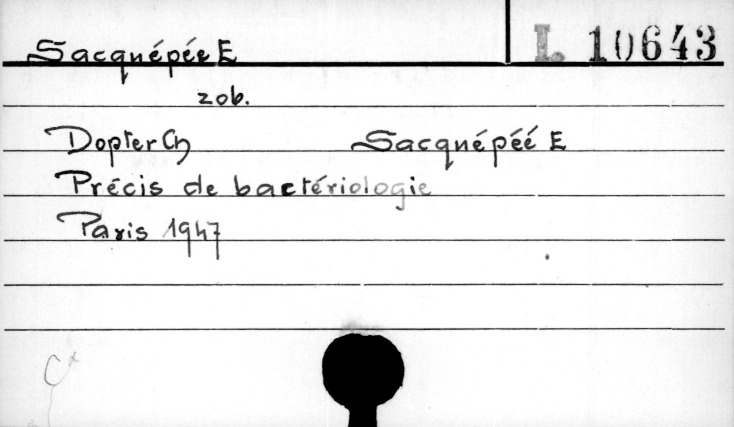 Sacquépée E L. 10643
zob.
Dopter Ch Sacquépéé E
Précis de bactériologie
Paris 1947